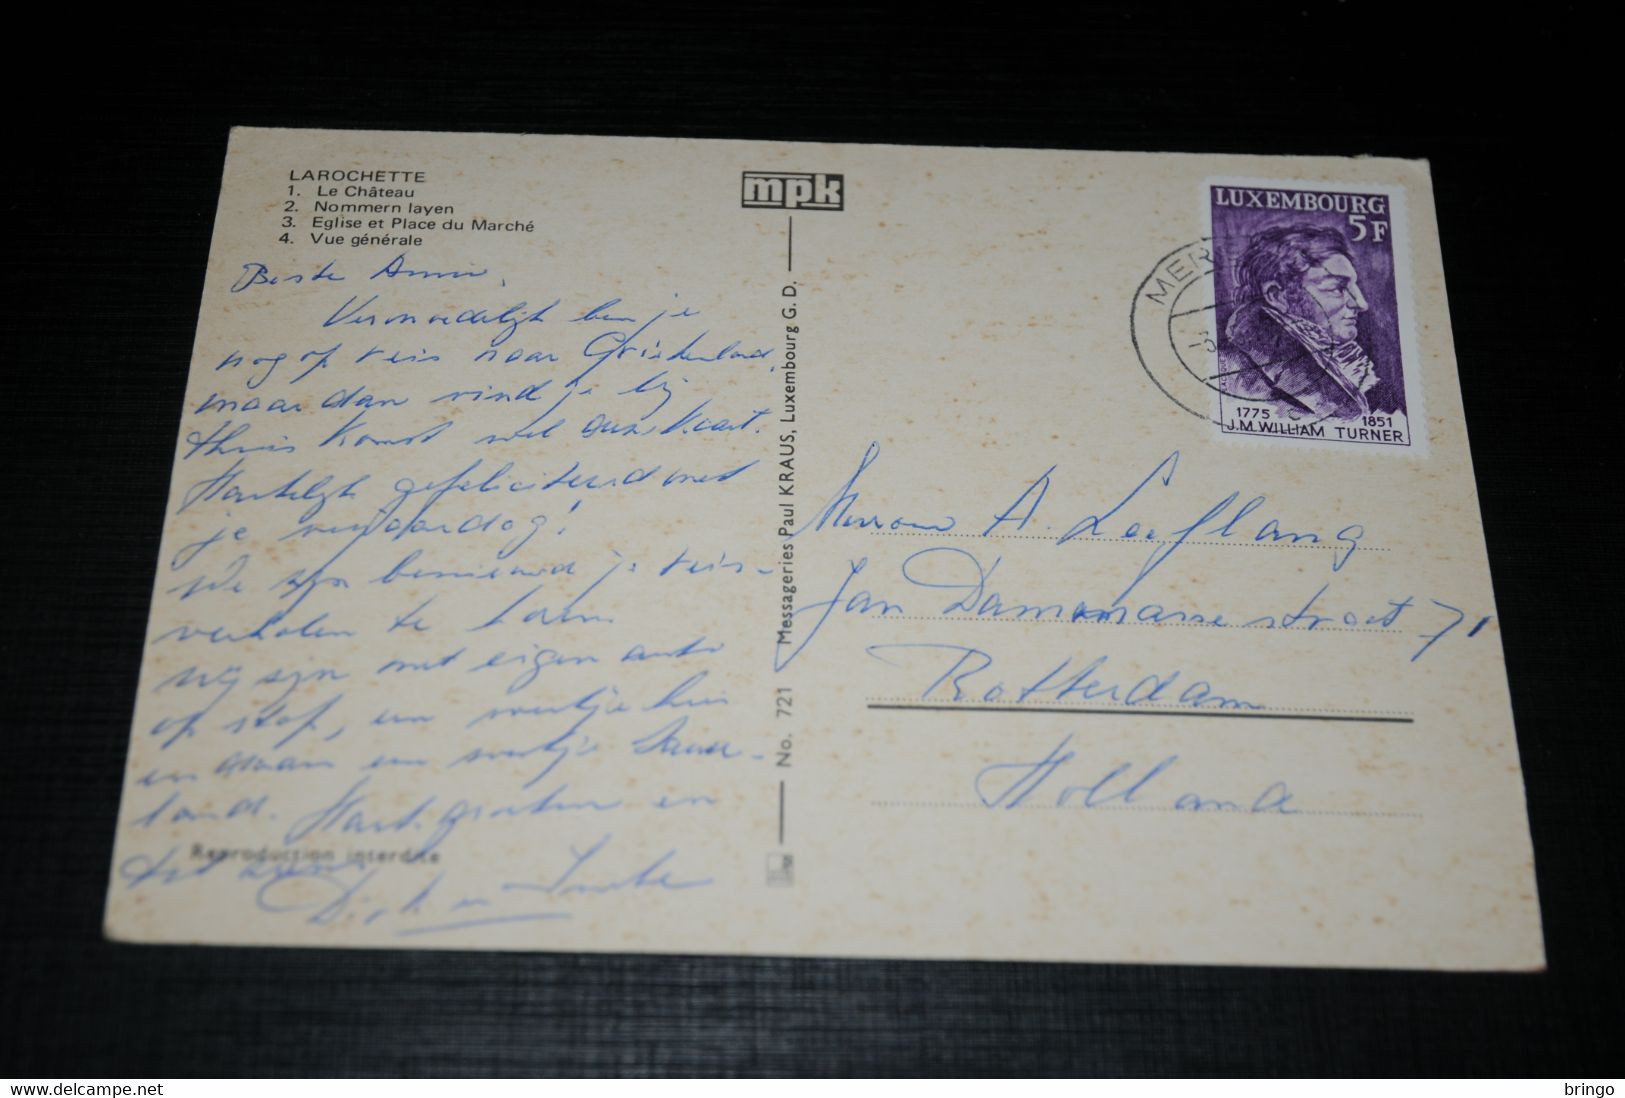 LAROCHETTE
1. Le Château
2. Nommern layen
3. Eglise et Place du Marché
4. Vue générale
mpk
LUXEMBOURG
5F
1775 1851
J.M.WILLIAM TURNER
MER
Beste Annie,
Vermoedelijk ben je
nog op reis naar Griekenland,
maar dan vind je bij
thuis komst wel onze kaart.
Hartelijk gefeliciteerd met
je verjaardag!
We zijn benieuwd je reis-
verhalen te horen
Wij zijn met eigen auto
op stap, een weekje hier
en daarna een weekje
land. Hart. groeten en
Dirk en
Reproduction interdite
No. 721 Messageries Paul KRAUS, Luxembourg G. D.
Mevrouw A. Leeflang
Jan Dammassestraat 71
Rotterdam
Holland
bringo